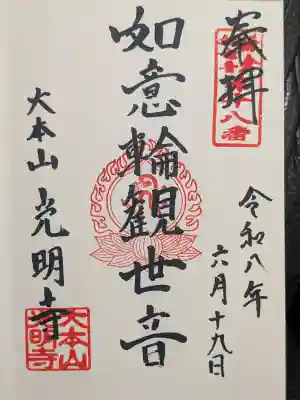 奉拝
令和八年
六月十九日
如意輪観世音
大本山光明寺
大本山
光明寺